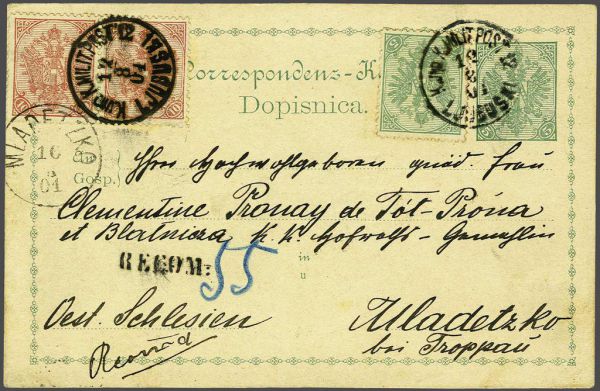 K. und K. MILIT. POST
12
8
01
K. und K. MILIT. POST
12
8
01
Correspondenz-K
Dopisnica.
MLADETZKO
16
8
01
Ihro Hochwohlgeboren gnäd. Frau
Gosp.
Clementine Pronay de Tót-Próna
et Blatnicza k. k. Hofraths-Gemahlin
in
u
RECOM:
55
Oest. Schlesien
Mladetzko
bei Troppau